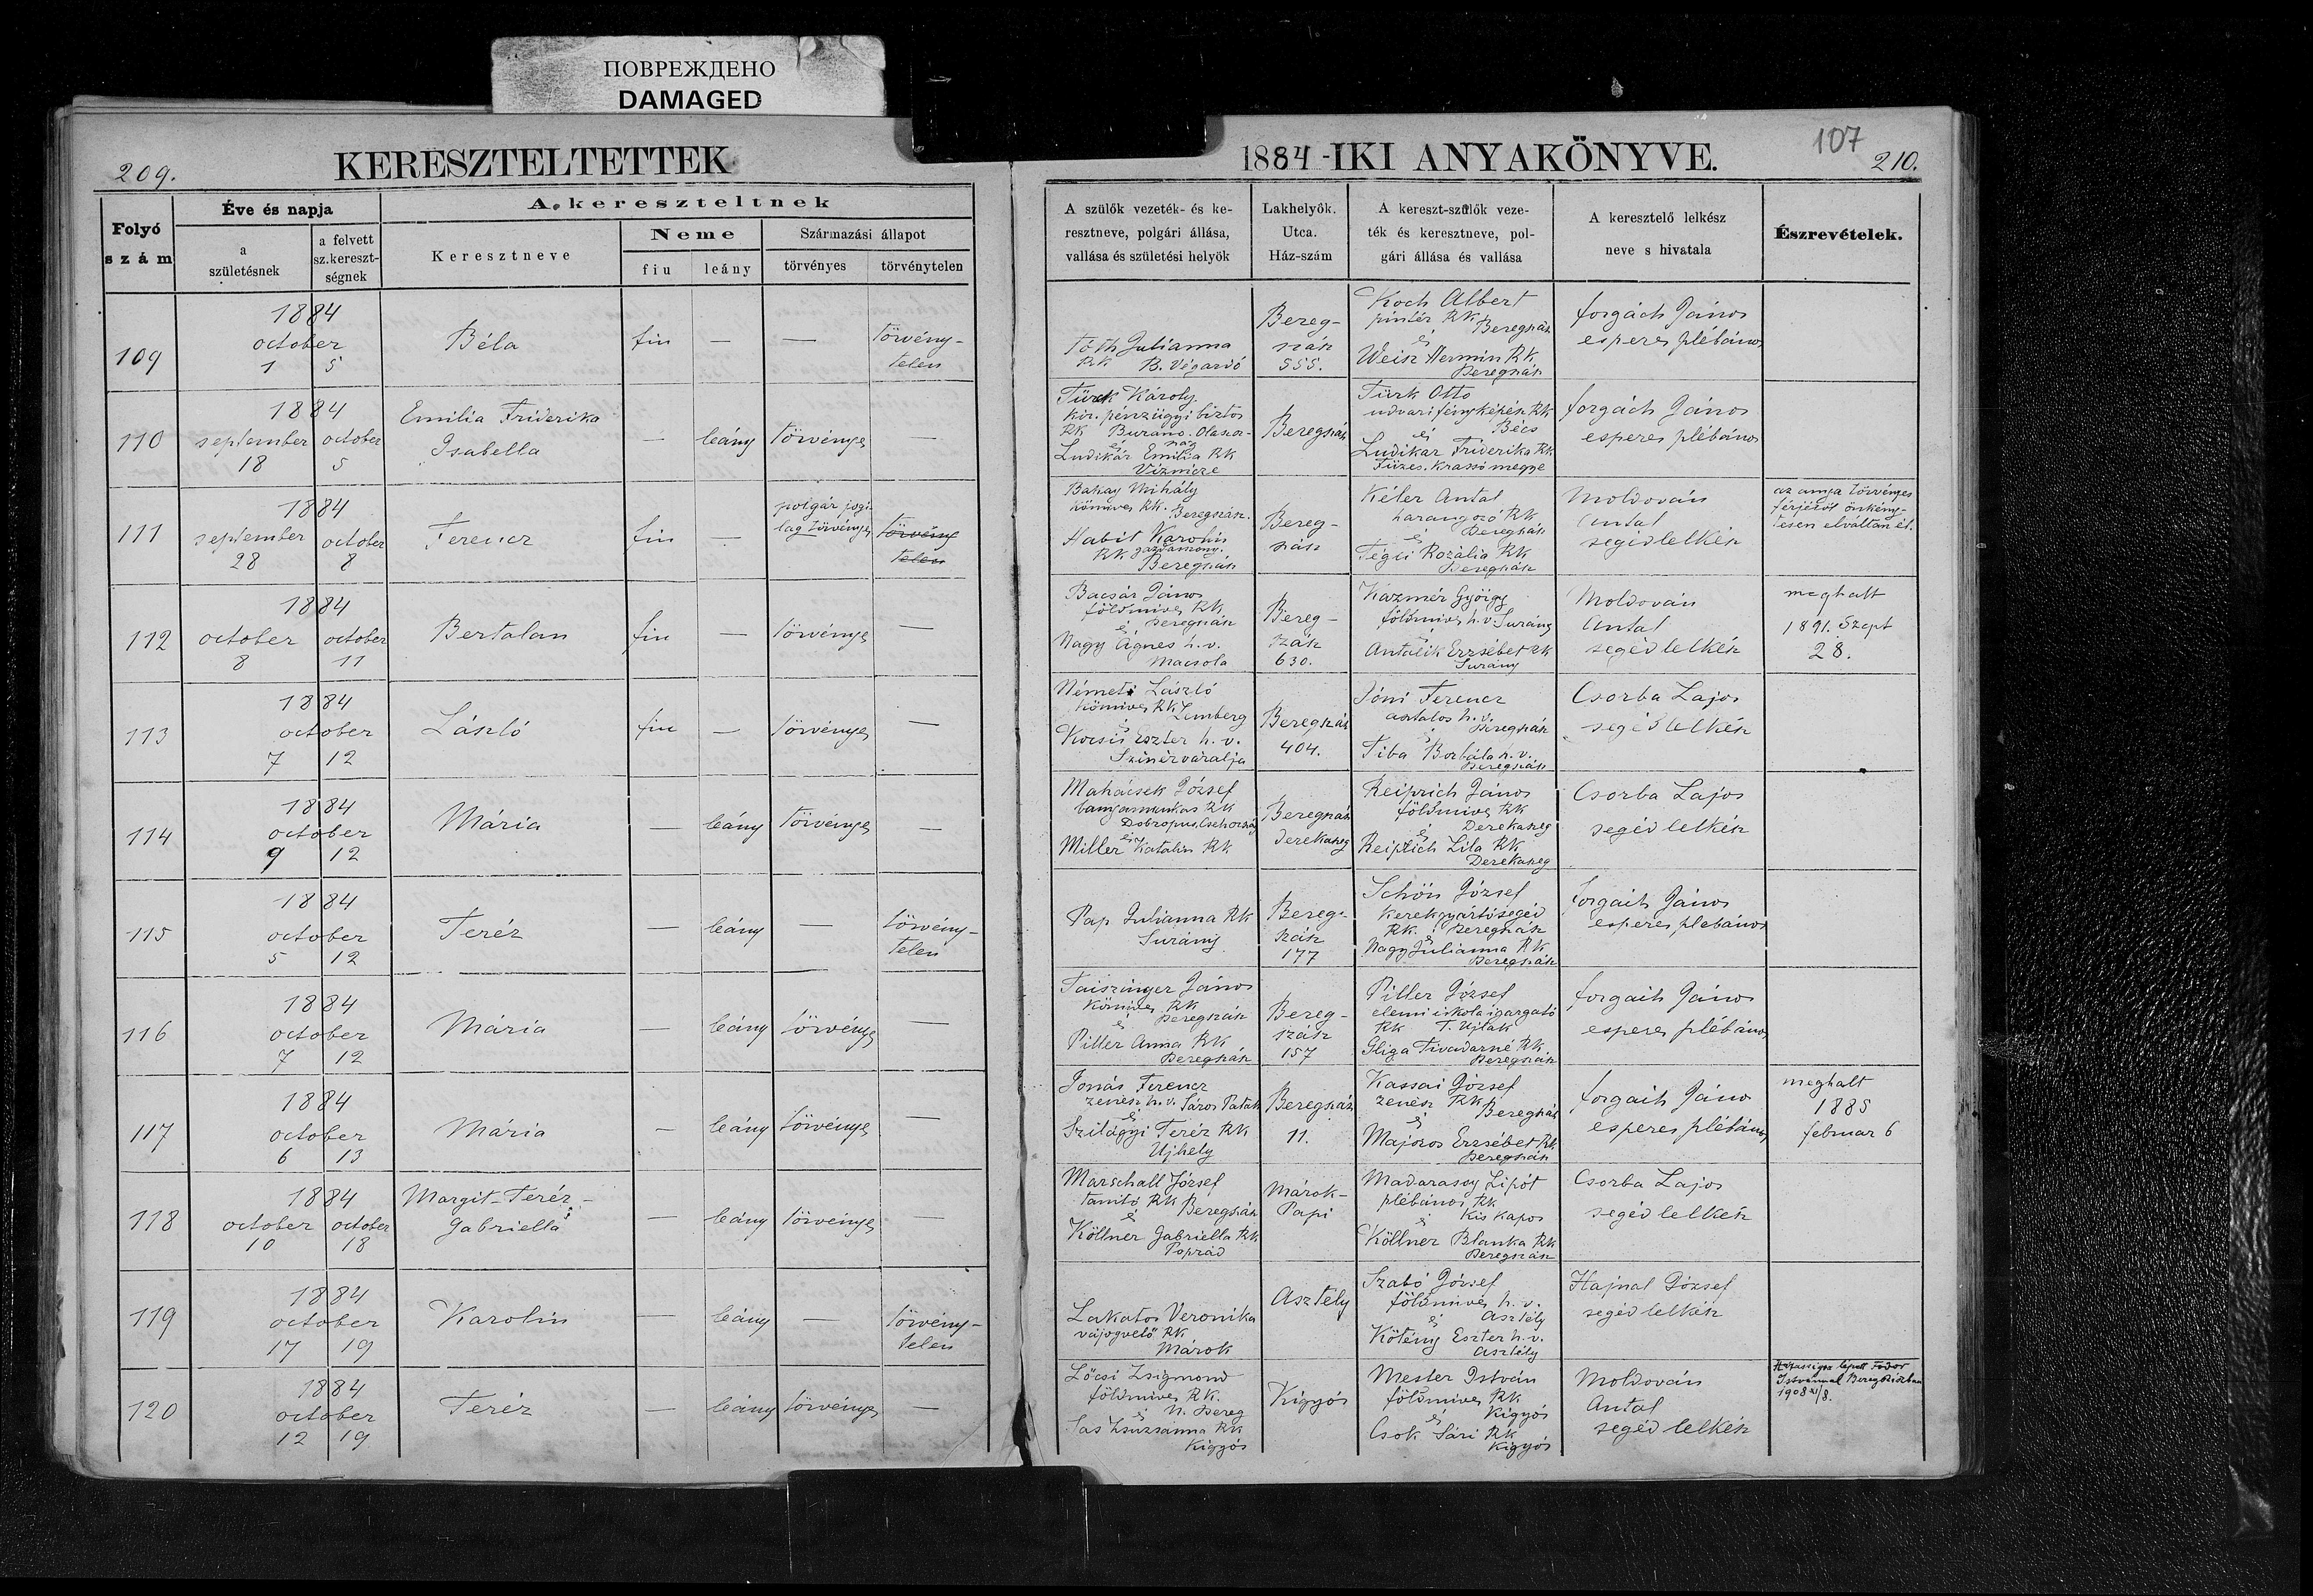 ПОВРЕЖДЕНО
DAMAGED
209.
KERESZTELTETTEK
1884-IKI ANYAKÖNYVE.
107
210.
Folyó szám
Éve és napja
a születésnek
a felvett sz.kereszt-ségnek
A kereszteltnek
Keresztneve
Neme
fiu
leány
Származási állapot
törvényes
törvénytelen
A szülők vezeték- és ke-
resztneve, polgári állása,
vallása és születési helyök
Lakhelyök.
Utca.
Ház-szám
A kereszt-szülők veze-
ték és keresztneve, pol-
gári állása és vallása
A keresztelő lelkész
neve s hivatala
Észrevételek.
109
1884
october
1 5
Béla
fiu
—
—
törvény-
telen
Tóth Julianna
RK B. Végardó
Bereg-
szász
555.
Koch Albert
pintér RK Beregszász
és
Weisz Hermin RK
Beregszász
Forgách János
esperes plébános
110
1884
september october
18 5
Emilia Friderika
Isabella
—
leány
törvényes
—
Türk Károly
kir. pénzügyi biztos
RK Burano. Olaszor-
szág
és
Ludikár Emilia RK
Beregszász
Türk Otto
udvari fényképész RK
Bécs
és
Ludikar Friderika RK
Füzes. Krassó megye
Forgách János
esperes plébános
111
1884
september october
28 8
Ferencz
fiu
—
polgár jogi-
lag törvényes
törvény
telen
Bakay Mihály
kömives RK. Beregszász.
Habit Karolin
RK gazdasszony.
Beregszász
Bereg-
szász
Kéler Antal
harangozó RK
Beregszász
és
Tégli Rozália RK
Beregszász
Moldován
Antal
segédlelkész
az anya törvényes
férjétől önkény-
tesen elváltan él.
112
1884
october october
8 11
Bertalan
fiu
—
törvényes
—
Bacsár János
földmives RK
és Beregszász
Nagy Ágnes h.v.
Macsola
Bereg-
szász
630.
Kazmér György
földmives h.v. Surány
és
Antalik Erzsébet RK
Surány
Moldován
Antal
segédlelkész
meghalt
1891. Szept
28.
113
1884
october
7 12
László
fiu
—
törvényes
—
Németi László
kömives RK Lemberg
és
Kocsis Eszter h.v.
Szinérváralja
Beregszász
404.
Jóni Ferencz
asztalos h.v.
Beregszász
és
Tiba Borbála h.v.
Beregszász
Csorba Lajos
segédlelkész
114
1884
october
9 12
Mária
—
leány
törvényes
—
Mahácsek József
bányamunkas RK
Dobropus, Csehország
és
Miller Katalin RK
Beregszász
Derekaszeg
Reiprich János
földmives RK
Derekaszeg
és
Reiprich Lila RK
Derekaszeg
Csorba Lajos
segédlelkész
115
1884
october
5 12
Teréz
—
leány
—
törvény-
telen
Pap Julianna RK
Surány
Bereg-
szász
177
Schön József
kerekgyártósegéd
RK. Beregszász
és
Nagy Julianna RK
Beregszász
Forgách János
esperes plebános
116
1884
october
7 12
Mária
—
leány
törvényes
—
Taiszinger János
kömives RK
és Beregszász
Piller Anna RK
Beregszász
Bereg-
szász
157
Piller József
elemi iskola igazgató
RK T. Ujlak
Gliga Tivadarné RK
Beregszász
Forgách János
esperes plébános
117
1884
october
6 13
Mária
—
leány
törvényes
—
Jonás Ferencz
zenész h.v. Sáros Patak
és
Szilágyi Teréz RK
Ujhely
Beregszász
11.
Kassai József
zenész RK
és Beregszász
Majoros Erzsébet RK
Beregszász
Forgách János
esperes plébános
meghalt
1885
februar 6
118
1884
october october
10 18
Margit-Teréz-
Gabriella
—
leány
törvényes
—
Marschall József
tanitó RK Beregszász
és
Köllner Gabriella RK
Poprád
Márok-
Papi
Madarassy Lipót
plébános RK
Kis Kapos
és
Köllner Blanka RK
Beregszász
Csorba Lajos
segédlelkész
119
1884
october
17 19
Karolin
—
leány
—
törvény-
telen
Lakatos Veronika
vájogvető RK
Márok
Asztély
Szabó József
földmives h.v.
és Asztély
Kötény Eszter h.v.
Asztély
Hajnal József
segédlelkész
120
1884
october
12 19
Teréz
—
leány
törvényes
—
Lőcsi Zsigmond
földmives RK.
és N. Bereg
Sas Zsuzsánna RK
Kigyós
Kigyós
Mester István
földmives RK
és Kigyós
Csok Sári RK
Kigyós
Moldován
Antal
segédlelkész
Házasságra lépett Fodor
Istvánnal Beregszászban
1908 XI/8.